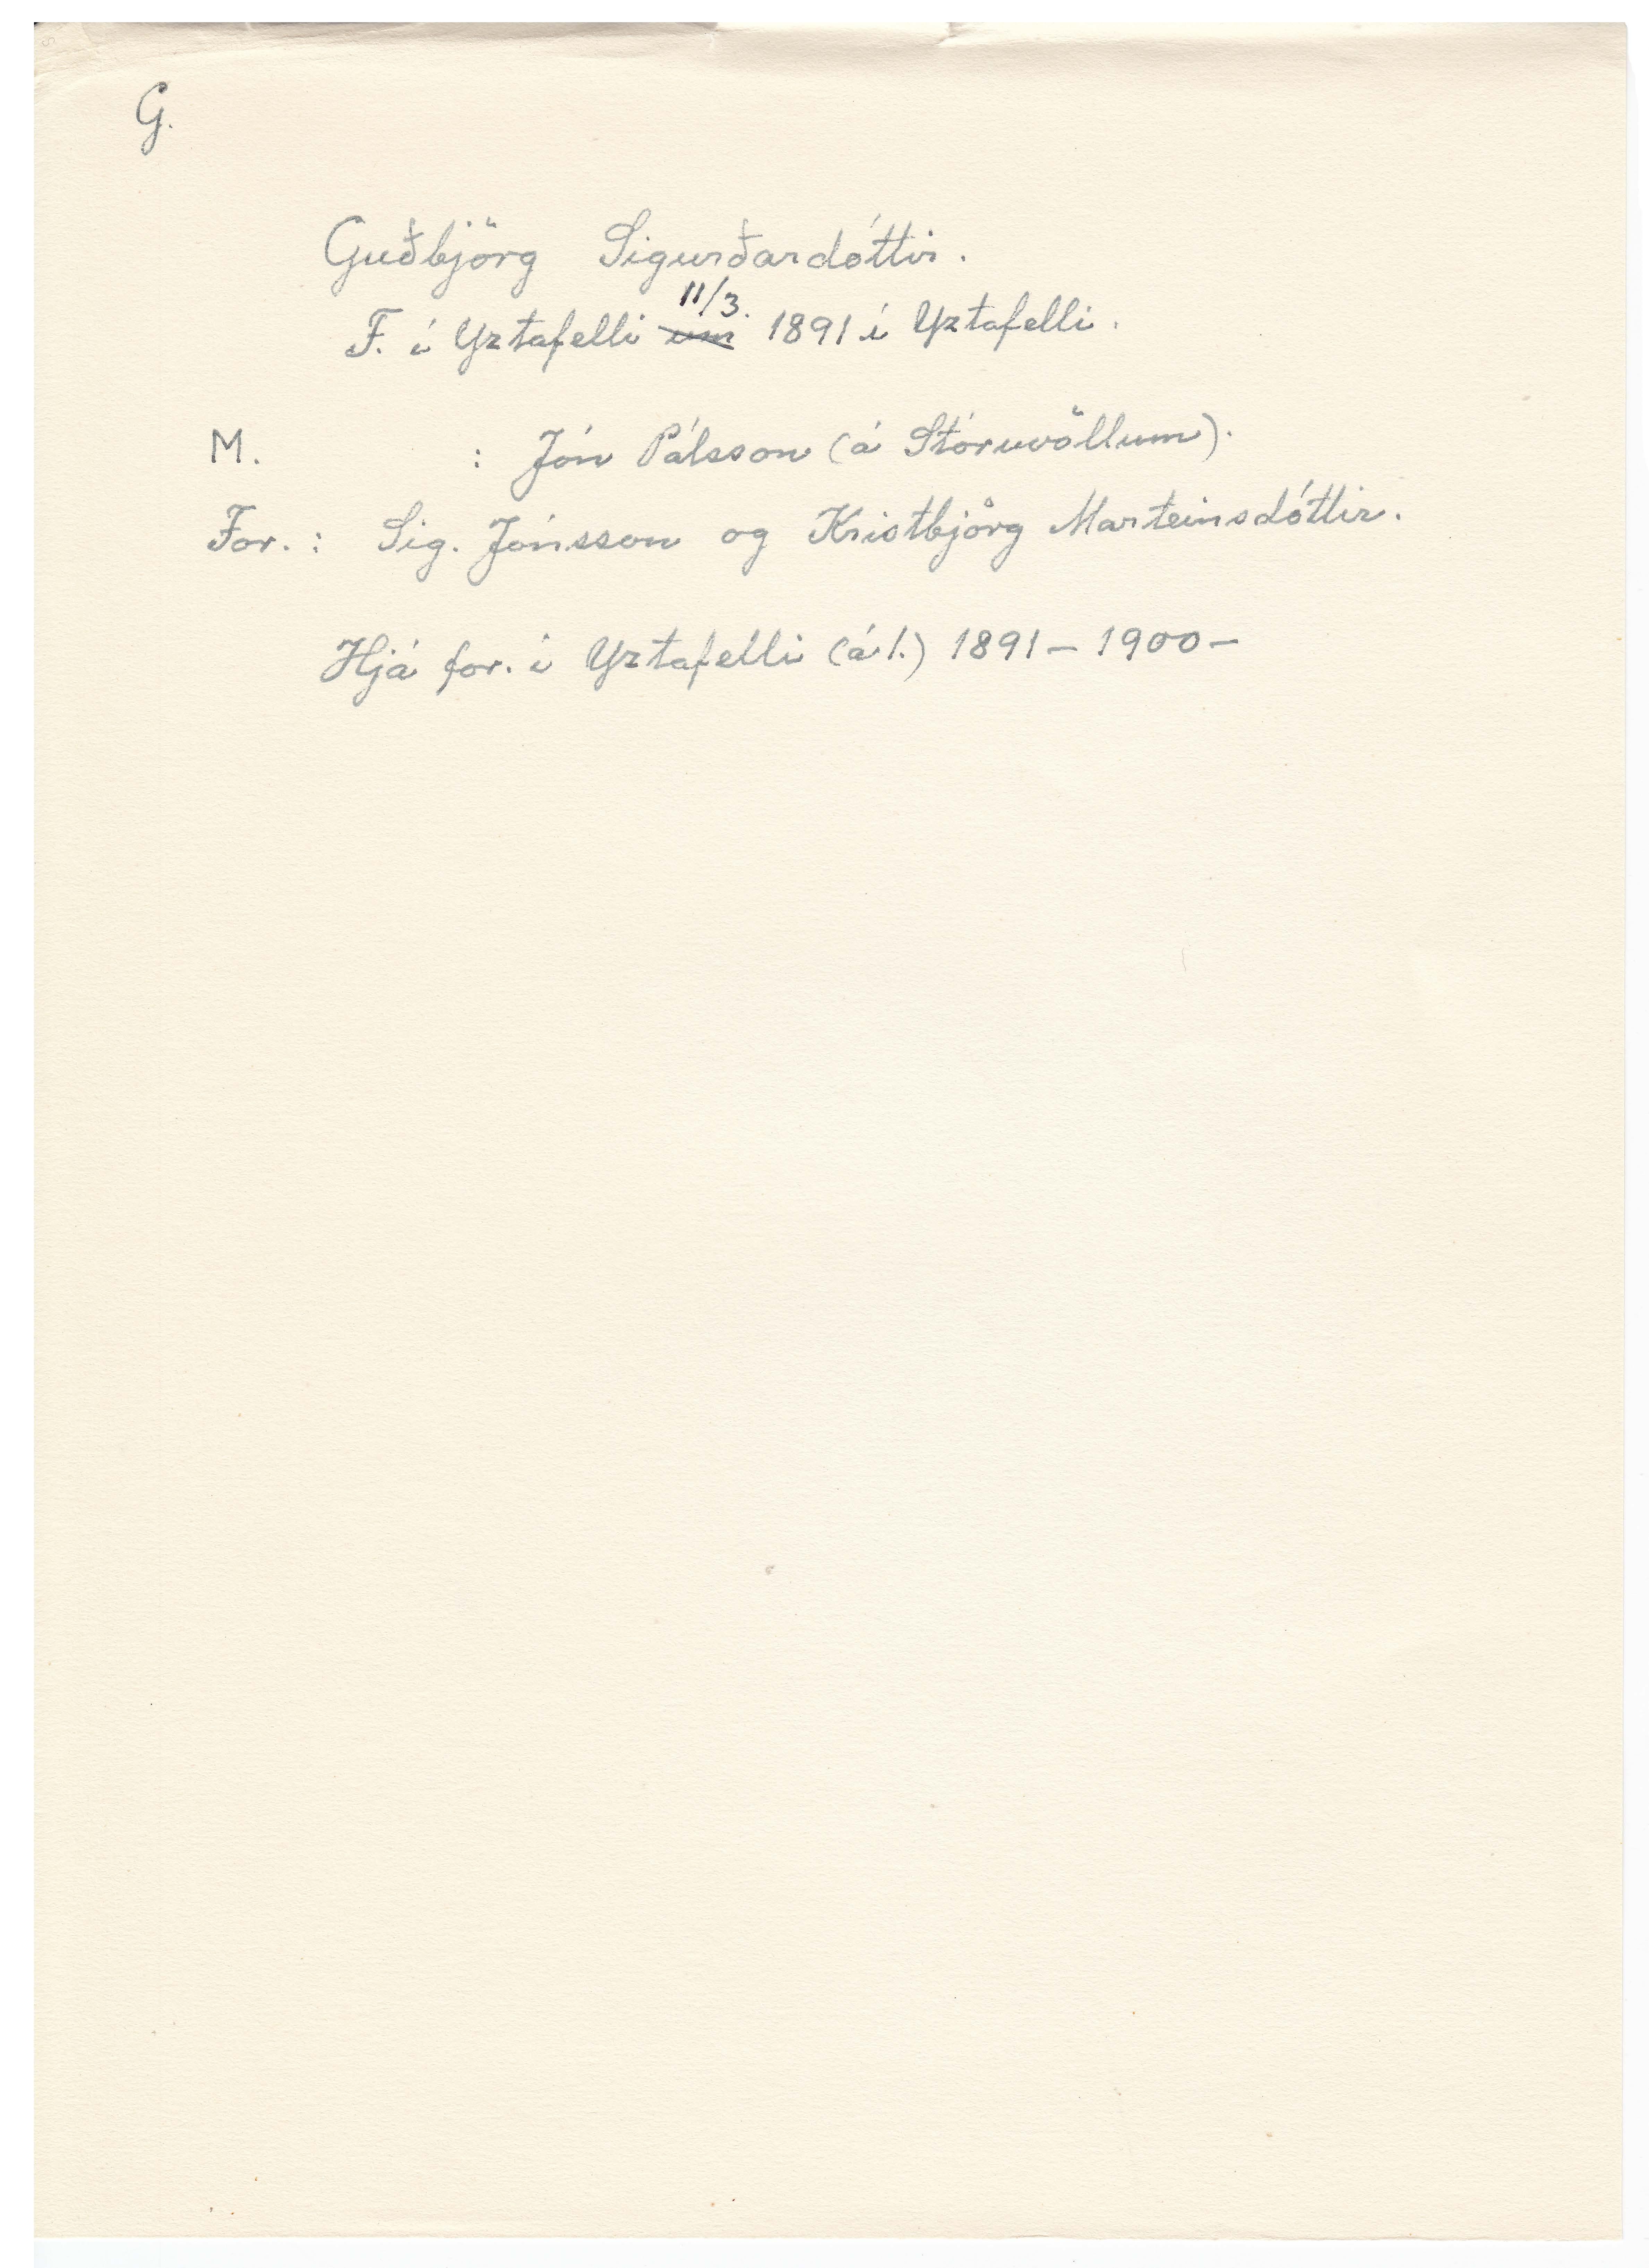 G.
Guðbjörg Sigurðardóttir.
11/3.
F. í Yztafelli um 1891 í Yztafelli.
M. : Jón Pálsson (á Stóruvöllum).
For. : Sig. Jónsson og Kristbjörg Marteinsdóttir.
Hjá for. í Yztafelli (á l.) 1891 – 1900 –